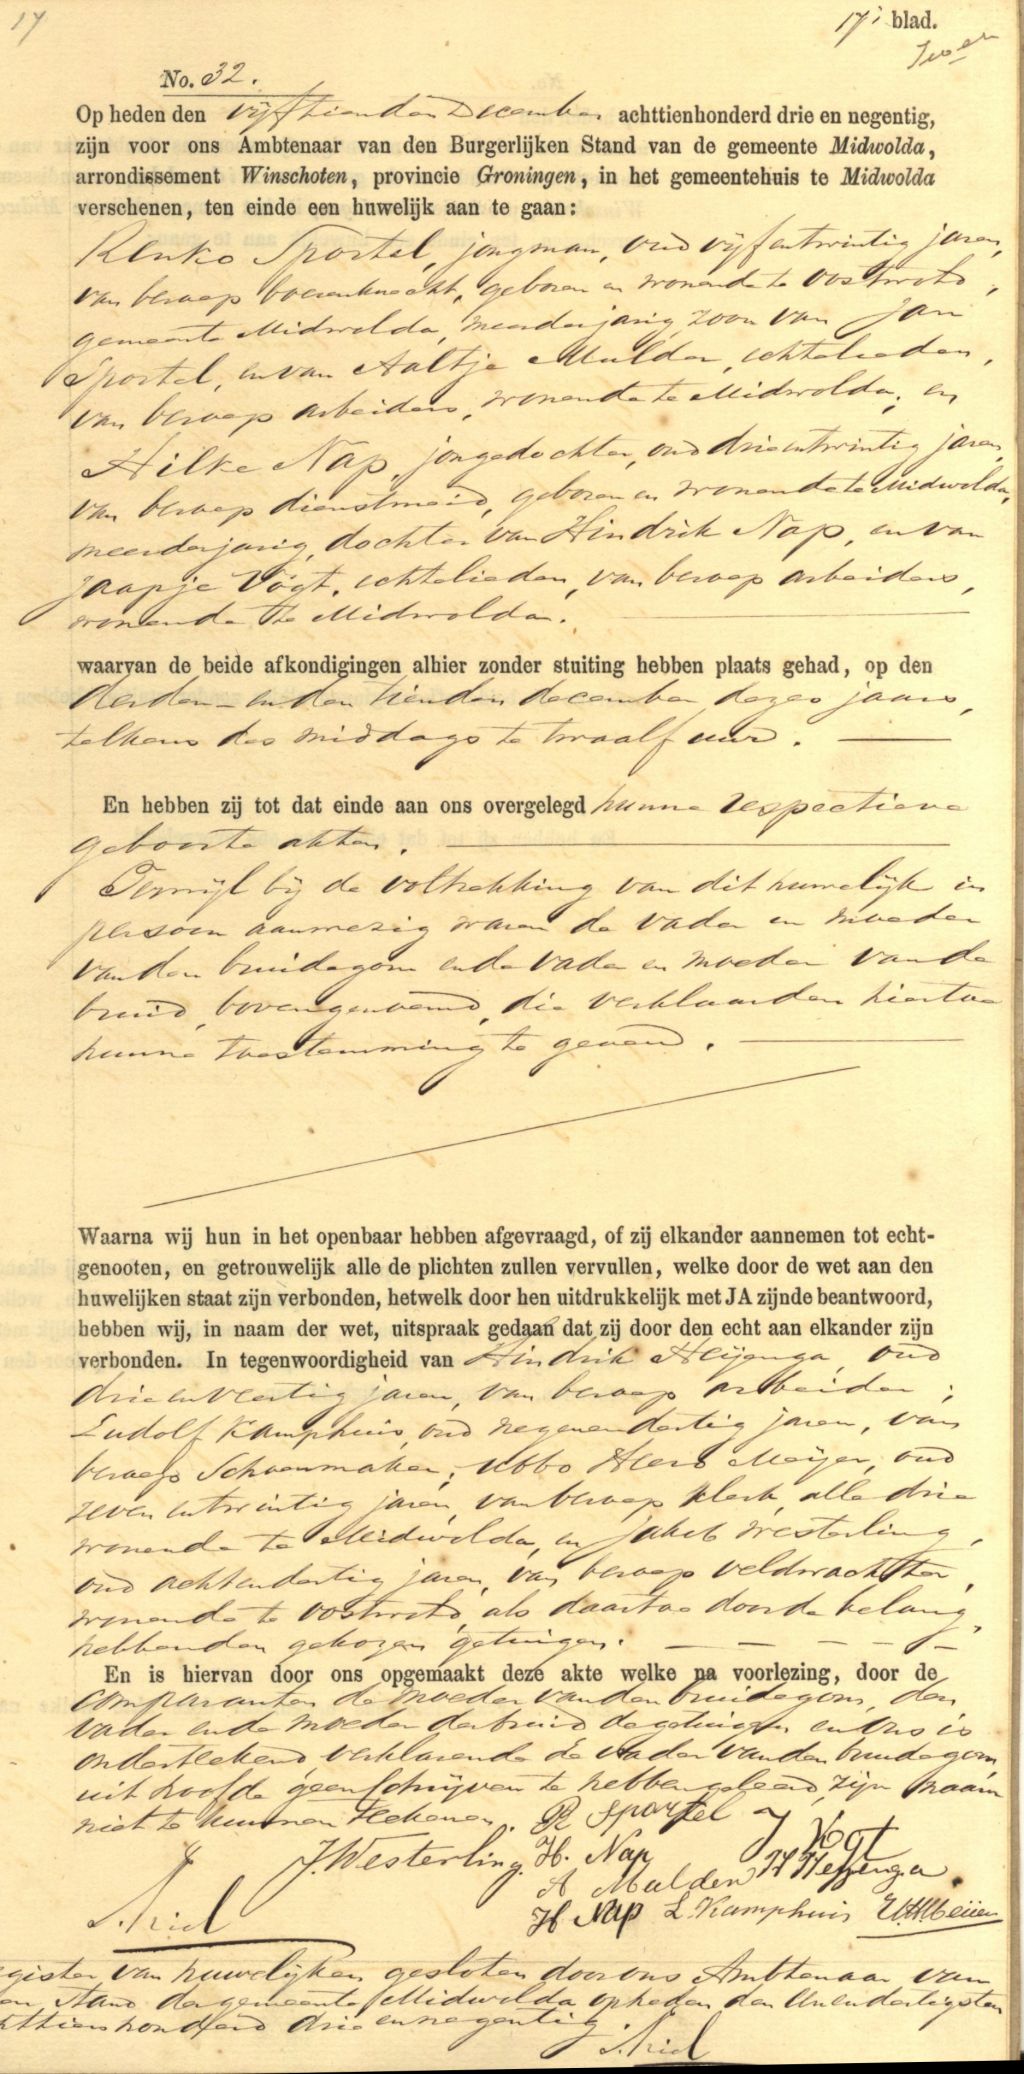 17
17e blad.
No. 32.
Op heden den vijftienden December achttienhonderd drie en negentig,
zijn voor ons Ambtenaar van den Burgerlijken Stand van de gemeente Midwolda,
arrondissement Winschoten, provincie Groningen, in het gemeentehuis te Midwolda
verschenen, ten einde een huwelijk aan te gaan:
Renko Sportel, jongman, oud vijf en twintig jaren,
van beroep boerenknecht, geboren en wonende te Oostwold,
gemeente Midwolda, meerderjarig zoon van Jan
Sportel, en van Aaltje Mulder, echtelieden,
van beroep arbeiders, wonende te Midwolda; en
Hilke Nap, jongedochter, oud drie entwintig jaren,
van beroep dienstmeid, geboren en wonende te Midwolda,
meerderjarig, dochter van Hindrik Nap, en van
Jaapje Vogt, echtelieden, van beroep arbeiders,
wonende te Midwolda.
waarvan de beide afkondigingen alhier zonder stuiting hebben plaats gehad, op den
derden en den tienden december dezes jaars,
telkens des middags te twaalf uur.
En hebben zij tot dat einde aan ons overgelegd hunne respectieve
geboorte akten.
Terwijl bij de voltrekking van dit huwelijk in
persoon aanwezig waren de vader en moeder
van den bruidegom en de vader en moeder van de
bruid, bovengenoemd, die verklaarden hiertoe
hunne toestemming te geven.
Waarna wij hun in het openbaar hebben afgevraagd, of zij elkander aannemen tot echt-
genooten, en getrouwelijk alle de plichten zullen vervullen, welke door de wet aan den
huwelijken staat zijn verbonden, hetwelk door hen uitdrukkelijk met JA zijnde beantwoord,
hebben wij, in naam der wet, uitspraak gedaan dat zij door den echt aan elkander zijn
verbonden. In tegenwoordigheid van Hindrik Heijenga, oud
drie en veertig jaren, van beroep arbeider;
Ludolf Kamphuis, oud negenendertig jaren, van
beroep Schoenmaker; Ubbo Heero Meijer, oud
zeven entwintig jaren, van beroep klerk, alle drie
wonende te Midwolda, en Jakob Westerling,
oud achtendertig jaren, van beroep veldwachter,
wonende te Oostwold, als daartoe door de belang-
hebbenden gekozen getuigen.
En is hiervan door ons opgemaakt deze akte welke na voorlezing, door de
comparanten de moeder van den bruidegom, den
vader en de moeder der bruid de getuigen en ons is
onderteekend, verklarende de vader van den bruidegom
uit hoofde geen schrijven te hebben geleerd, zijn naam
niet te kunnen teekenen. R Sportel J Vogt
J. Westerling. H. Nap
A Mulder H Heijenga.
H Nap L. Kamphuis U.H. Meijer
egister van huwelijken gesloten door ons Ambtenaar van
en Stand der gemeente Midwolda op heden den eenendertigsten
chttienhonderd drie en negentig.